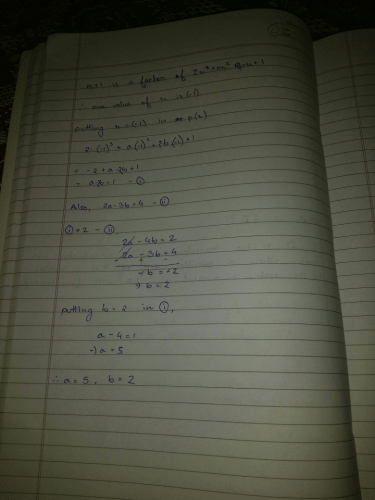 x+1 is a factor of 2x³+ax²+2bx+1
∴ one value of x is (-1)
putting x = (-1) in p(x)
2(-1)³ + a(-1)² + 2b(-1) + 1
= -2 + a - 2b + 1
= a - 2b = 1 - ①
Also, 2a - 3b = 4 - ②
① × 2 - ②
2a - 4b = 2
2a - 3b = 4
-b = -2
→ b = 2
putting b = 2 in ①,
a - 4 = 1
→ a = 5
∴ a = 5, b = 2